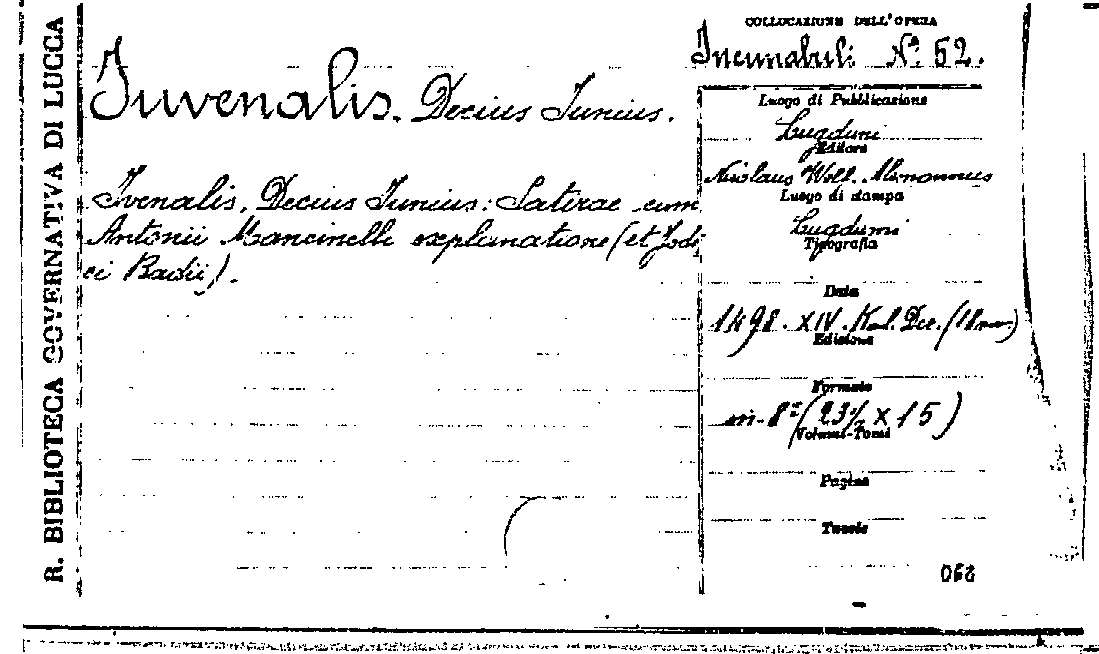 R. BIBLIOTECA GOVERNATIVA DI LUCCA
COLLOCAZIONE DELL'OPERA
Incunabuli Nº 52.
Juvenalis. Decius Junius.
Ivenalis, Decius Junius: Satirae cum
Antonii Mancinelli explanatione (et Jodo
ci Badii).
Luogo di Pubblicazione
Lugduni
Editore
Nicolaus Wolf. Alemannus
Luogo di stampa
Lugduni
Tipografia
Data
1498. XIV. Kal. Dec. (18
Edizione
Formato
in-8º (23½ x 15)
Volumi-Tomi
Pagine
Tavole
062